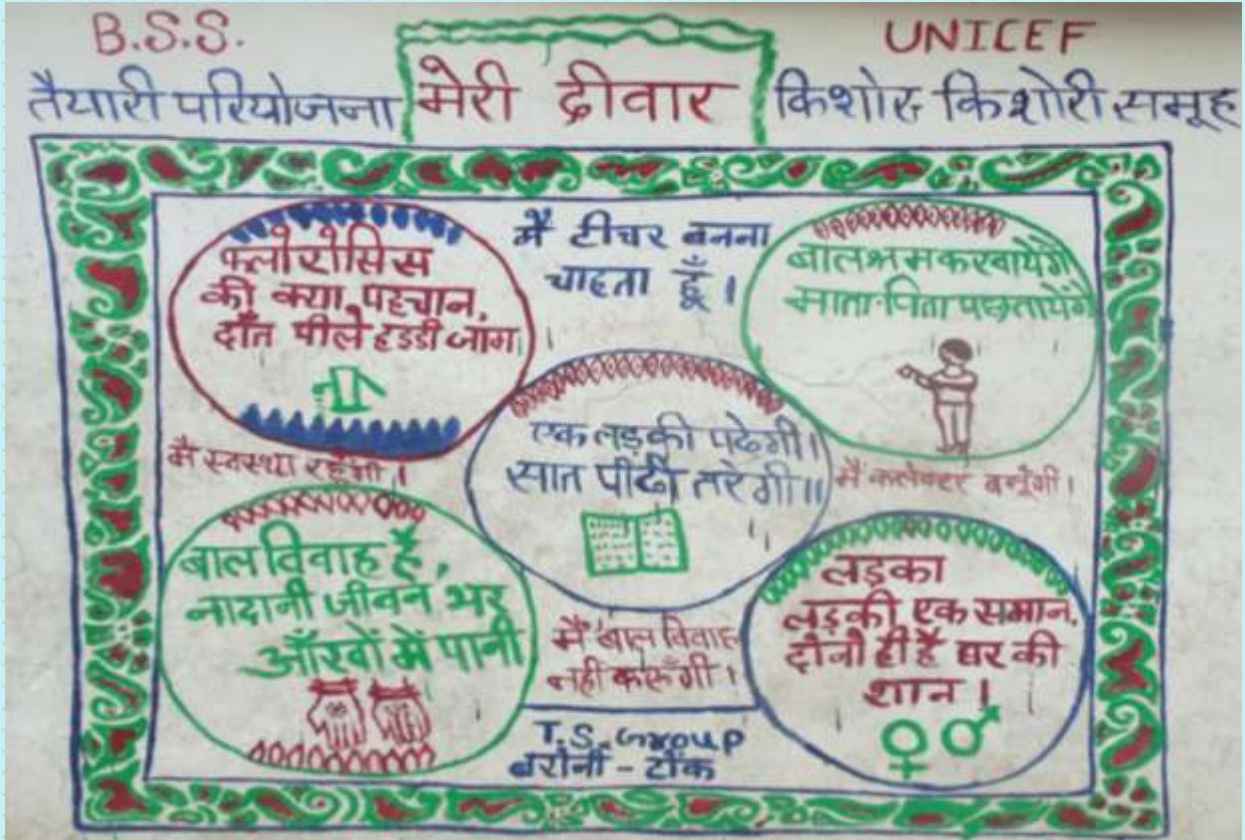 B.S.S.
UNICEF
तैयारी परियोजना
मेरी दीवार
किशोर किशोरी समूह
फ्लोरोसिस
की क्या पहचान,
दाँत पीले हडडी जाम
मैं टीचर बनना
चाहता हूँ।
बालश्रम करवायेंगे
माता-पिता पछतायेंगे
मैं स्वस्था रहूँगी।
एक लड़की पढेगी।
सात पीढी तरेगी॥
मैं कलेक्टर बनूँगी।
बाल विवाह है,
नादानी जीवन भर
आँखों में पानी
मैं बाल विवाह
नही करूँगी।
लड़का
लड़की एक समान,
दोनो ही है घर की
शान।
T.S. Group
बरोनी - टोंक